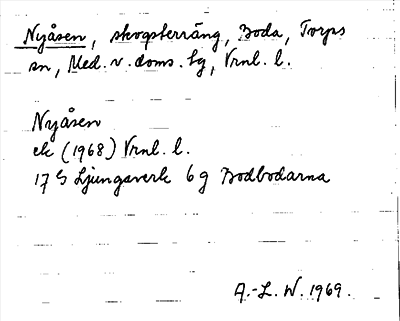 Nyåsen, skogsterräng, Boda, Torps
sn, Med. v. doms. lg, Vrnl. l.
Nyåsen
ek (1968) Vrnl. l.
17 G Ljungaverk 6 g Bodbodarna
A.-L. W. 1969.